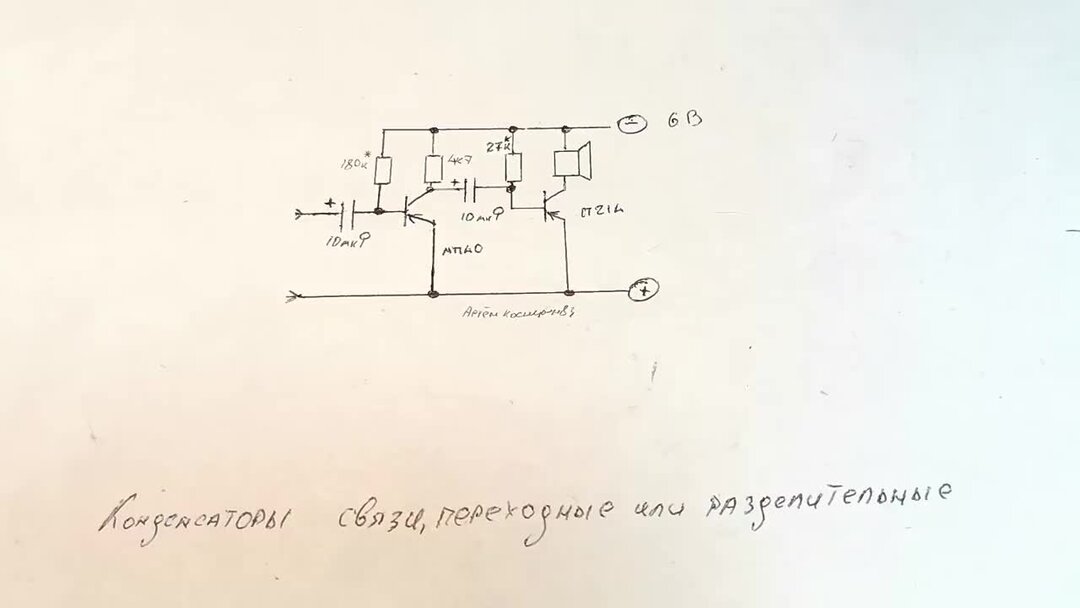 6 В
180к*
4к7
27к*
+
+
10мкФ
10мкФ
МП40
П214
+
Артём Косицын
Конденсаторы связи, переходные или разделительные